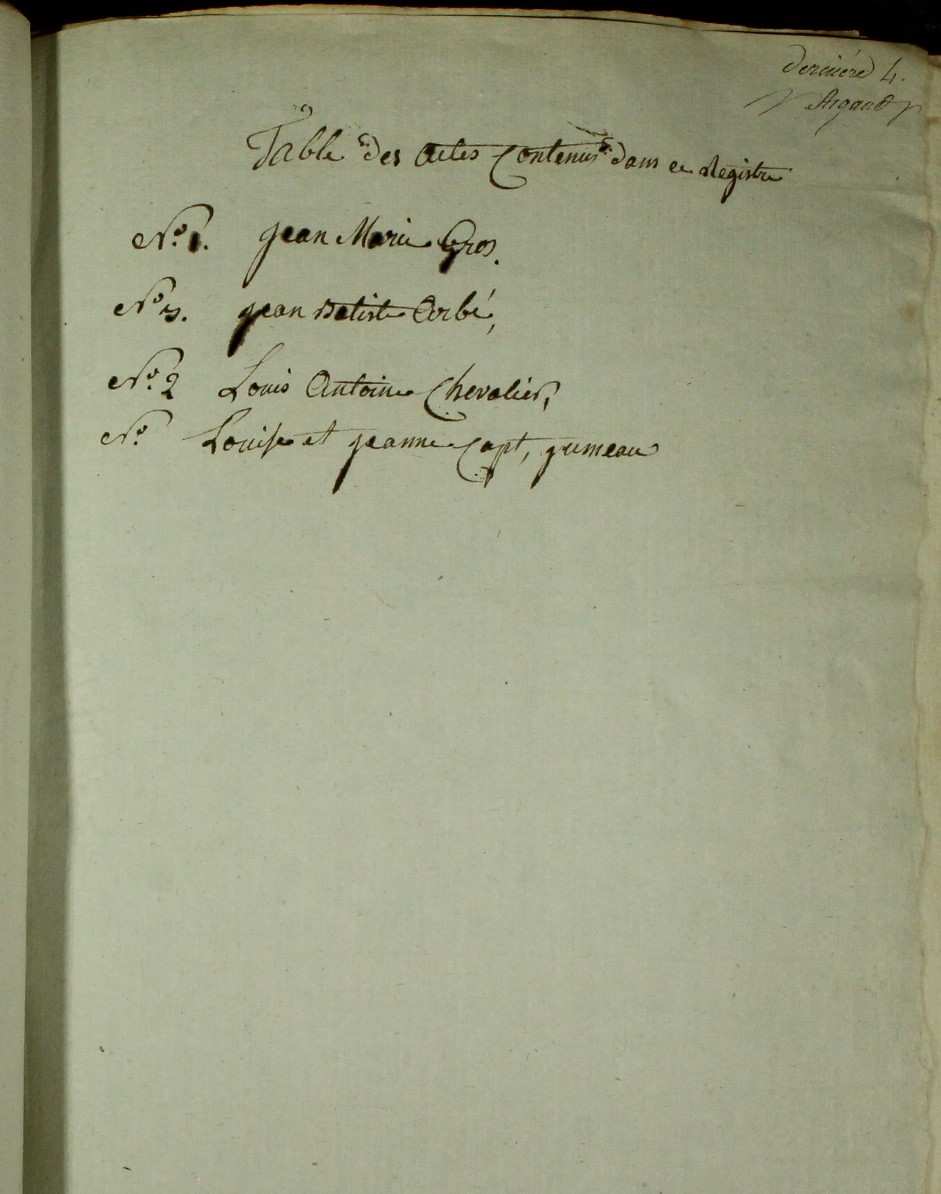 derniére 4.
Argaud
Table des Actes Contenus dans ce Registre
No. 1. Jean Marie Gros.
No 3. Jean Batiste Orbé,
No. 2 Louis Antoine Chevalier,
No. Louise et Jeanne Capt, jumeau